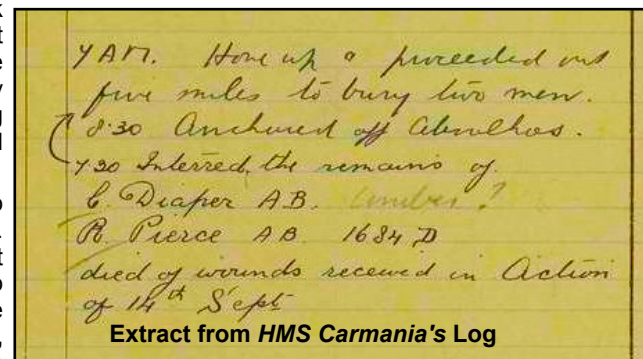 7 AM. Hove up & proceeded out
five miles to bury two men.
8.30 Anchored off Abrolhos.
7.30 Interred the remains of
C. Diaper AB. number?
R. Pierce AB 1684 D
died of wounds received in Action
of 14th Sept
Extract from HMS Carmania's Log